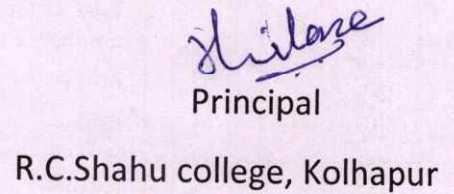 Principal
R.C.Shahu college, Kolhapur